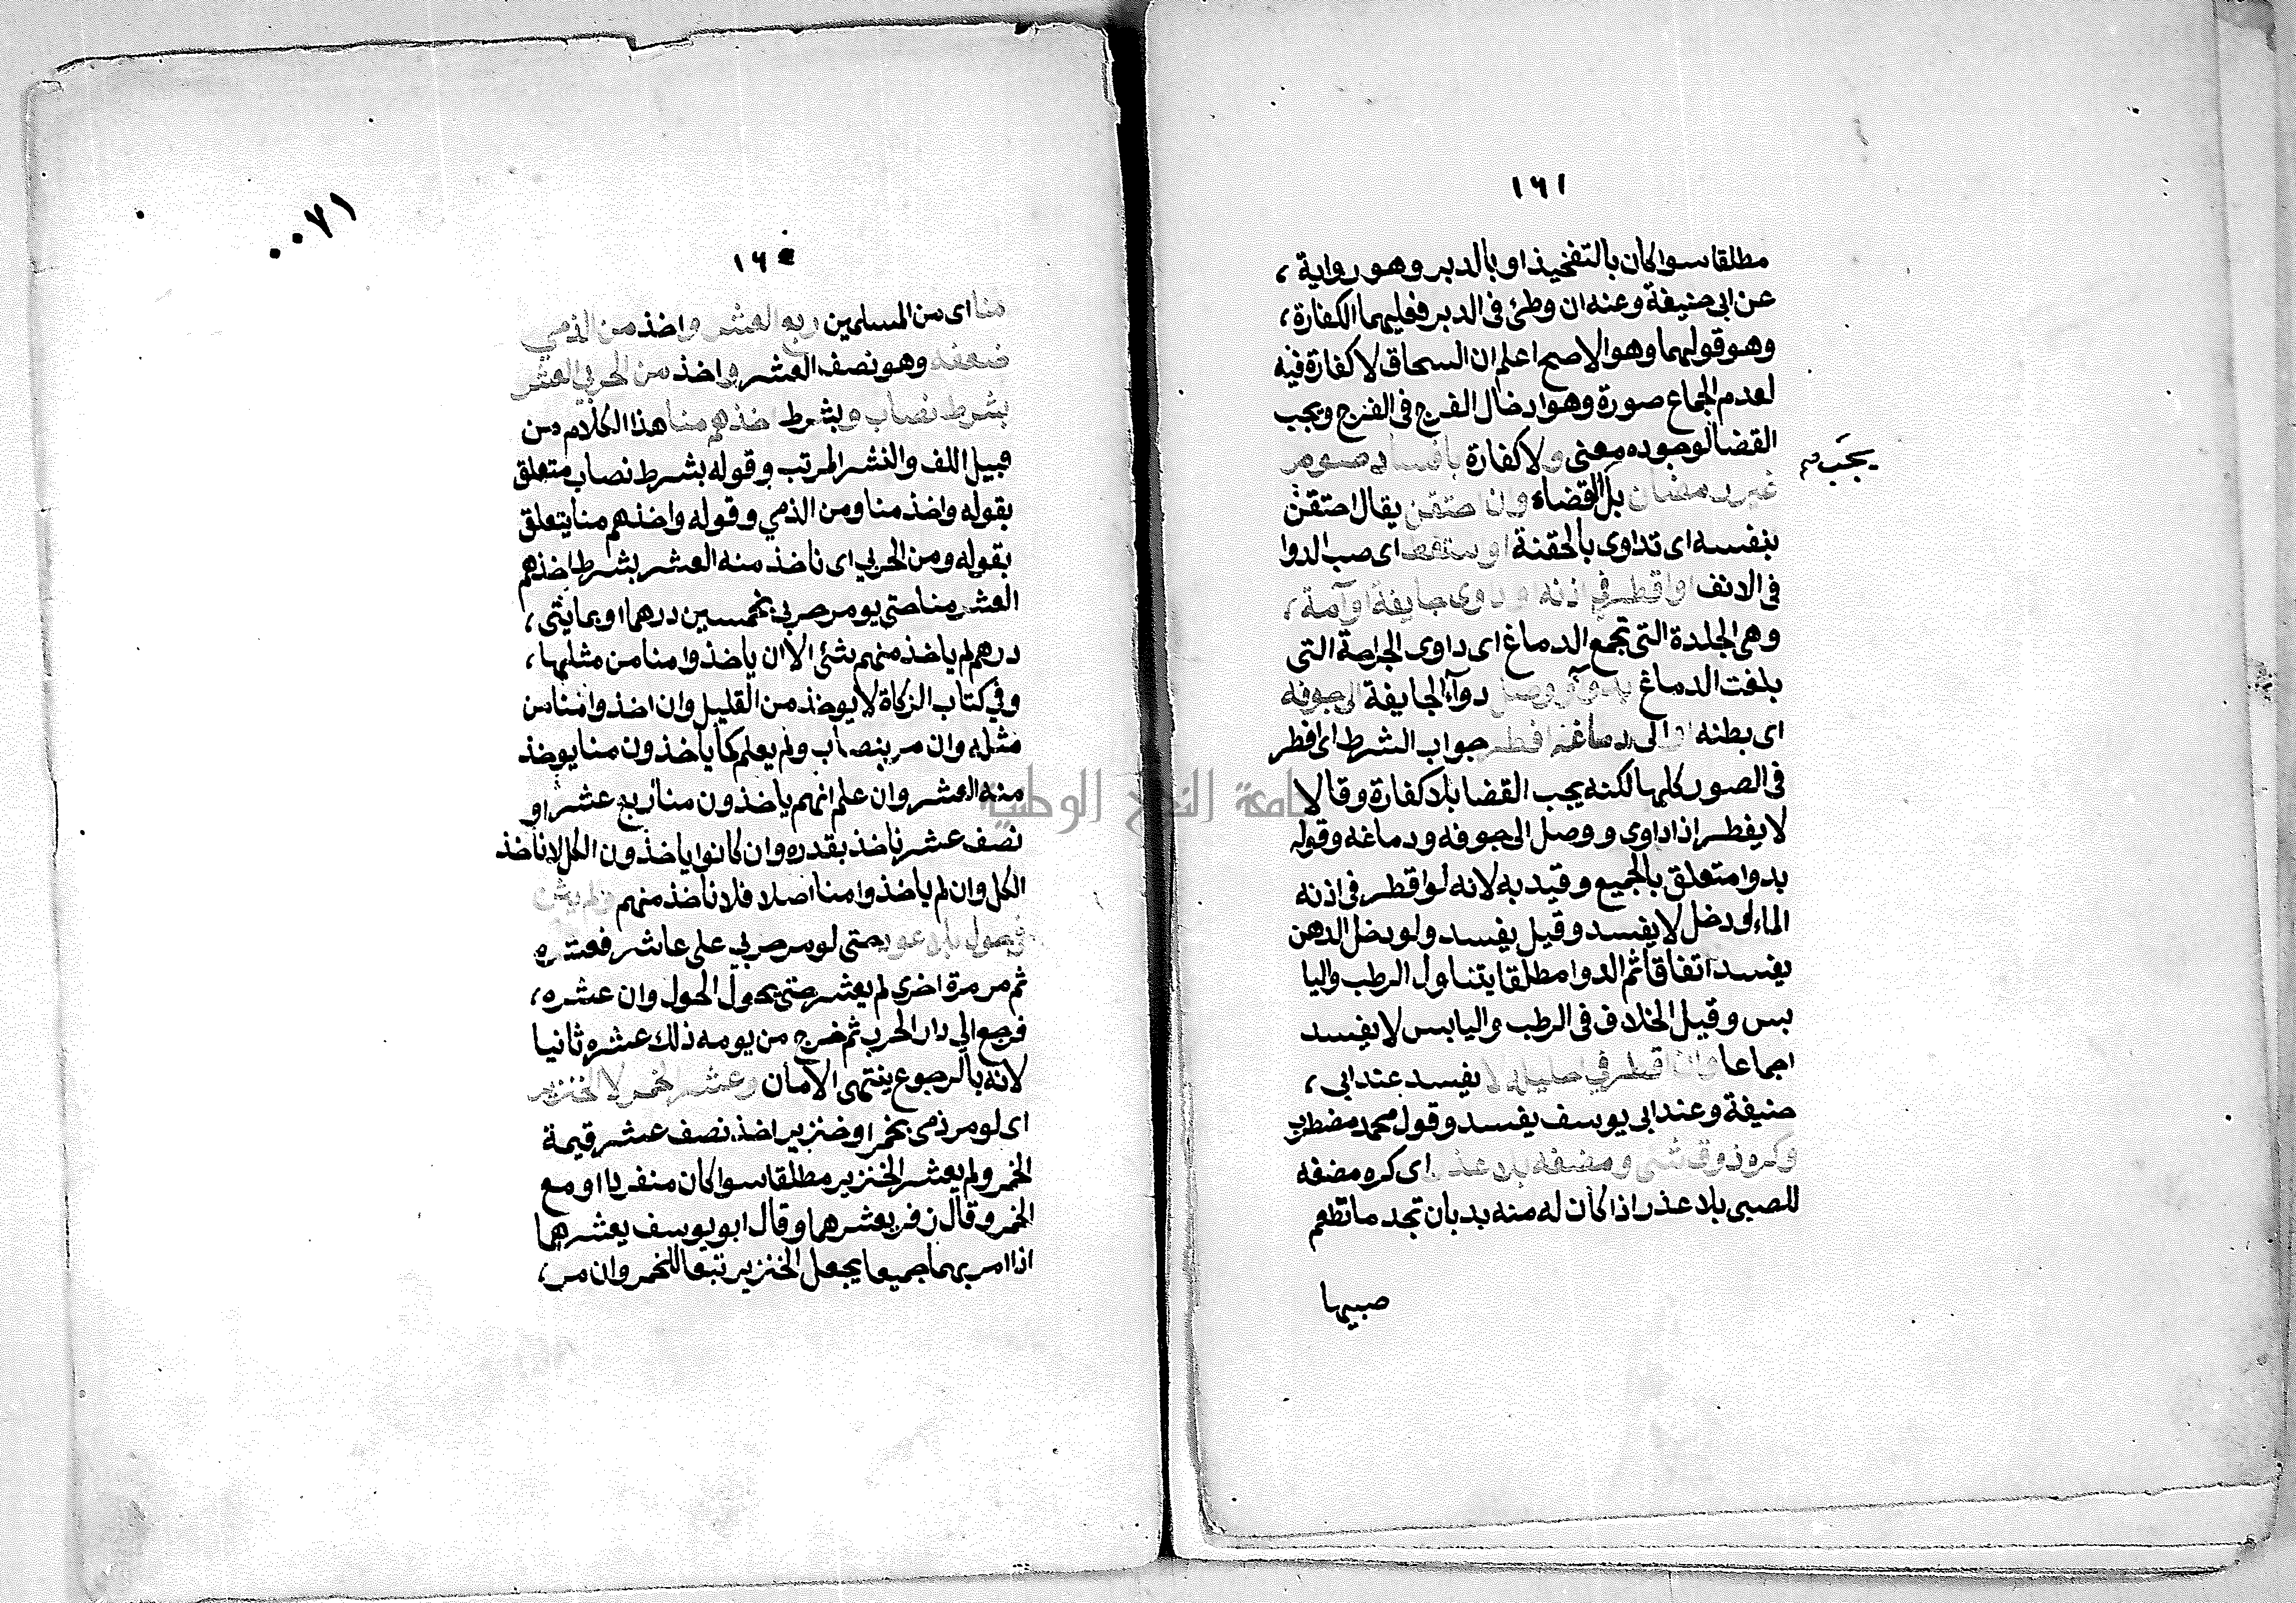 ١٦١
مطلقا سوا كان بالتفخيذ او بالدبر وهو رواية ،
عن ابى حنيفة وعنه ان وطئ فى الدبر فعليهما الكفارة ،
وهو قولهما وهو الاصح اعلم ان السحاق لا كفارة فيه
لعدم الجماع صورة وهو ادخال الفرج فى الفرج ويجب
القضا لوجوده معنى ولا كفارة بافساد صوم
غير رمضان بل القضاء وان احتقن يقال احتقن
يجب صح
بنفسه اى تداوى بالحقنة او استعط اى صب الدوا
فى الانف او اقطر في اذنه او داوى جايفة او آمة ،
وهى الجلدة التى تجمع الدماغ اى داوى الجراحة التى
بلغت الدماغ بدوآء ووصل دوآء الجايفة الى جوفه
اى بطنه او الى دماغه افطر جواب الشرط اى افطر
فى الصور كلها لكنه يجب القضا بلا كفارة وقالا
لا يفطر اذا داوى ووصل الى جوفه ودماغه وقوله
بدوا متعلق بالجميع وقيد به لانه لو اقطر فى اذنه
الماء او دخل لا يفسد وقيل يفسد ولو دخل الدهن
يفسد اتفاقا ثم الدوا مطلقا يتناول الرطب واليا
بس وقيل الخلاف فى الرطب واليابس لا يفسد
اجماعا وان اقطر في احليله لا يفسد عند ابى ،
حنيفة وعند ابى يوسف يفسد وقول محمد مضطرب
وكره ذوق شئ ومضغه بلا عذر اى كره مضغه
للصبى بلا عذر اذا كان له منه بد بان تجد ما تطعم
صبيها
٠٠٧١
منا اى من المسلمين ربع العشر واخذ من الذمي
ضعفه وهو نصف العشر واخذ من الحربي العشر
بشرط نصاب وبشرط اخذهم منا هذا الكلام من
قبيل اللف والنشر المرتب وقوله بشرط نصاب متعلق
بقوله واخذ منا ومن الذمي وقوله واخذهم منا يتعلق
بقوله ومن الحربي اى ناخذ منه العشر بشرط اخذهم
العشر منا حتى لو مر حربي بخمسين درهما او بمايتى ،
درهم لم ياخذ منهم بشئ الا ان ياخذوا منا من مثلها ،
وفي كتاب الزكاة لا يوخذ من القليل وان اخذوا منا من
مثله وان مر بنصاب ولم يعلم كم ياخذون منا يوخذ
منه العشر وان علم انهم ياخذون منا ربع عشر او
نصف عشر ناخذ بقدره وان كانوا ياخذون الكل لا ناخذ
الكل وان لم ياخذوا منا اصلا فلا ناخذ منهم ولم يثن
في حول بلا عود حتى لو مر حربي على عاشر فعشره
ثم مر مرة اخرى لم يعشر حتى يحول الحول وان عشره ،
فرجع الى دار الحرب ثم خرج من يومه ذلك عشره ثانيا
لانه بالرجوع ينتهى الامان وعشر الخمر لا الخنزير
اى لو مر ذمى بخمر او خنزير اخذ نصف عشر قيمة
الخمر ولم يعشر الخنزير مطلقا سوا كان منفردا او مع
الخمر وقال زفر يعشرهما وقال ابو يوسف يعشرهما
اذا امر بهما جميعا يجعل الخنزير تبعا للخمر وان مر ،
جامعة النجاح الوطنية